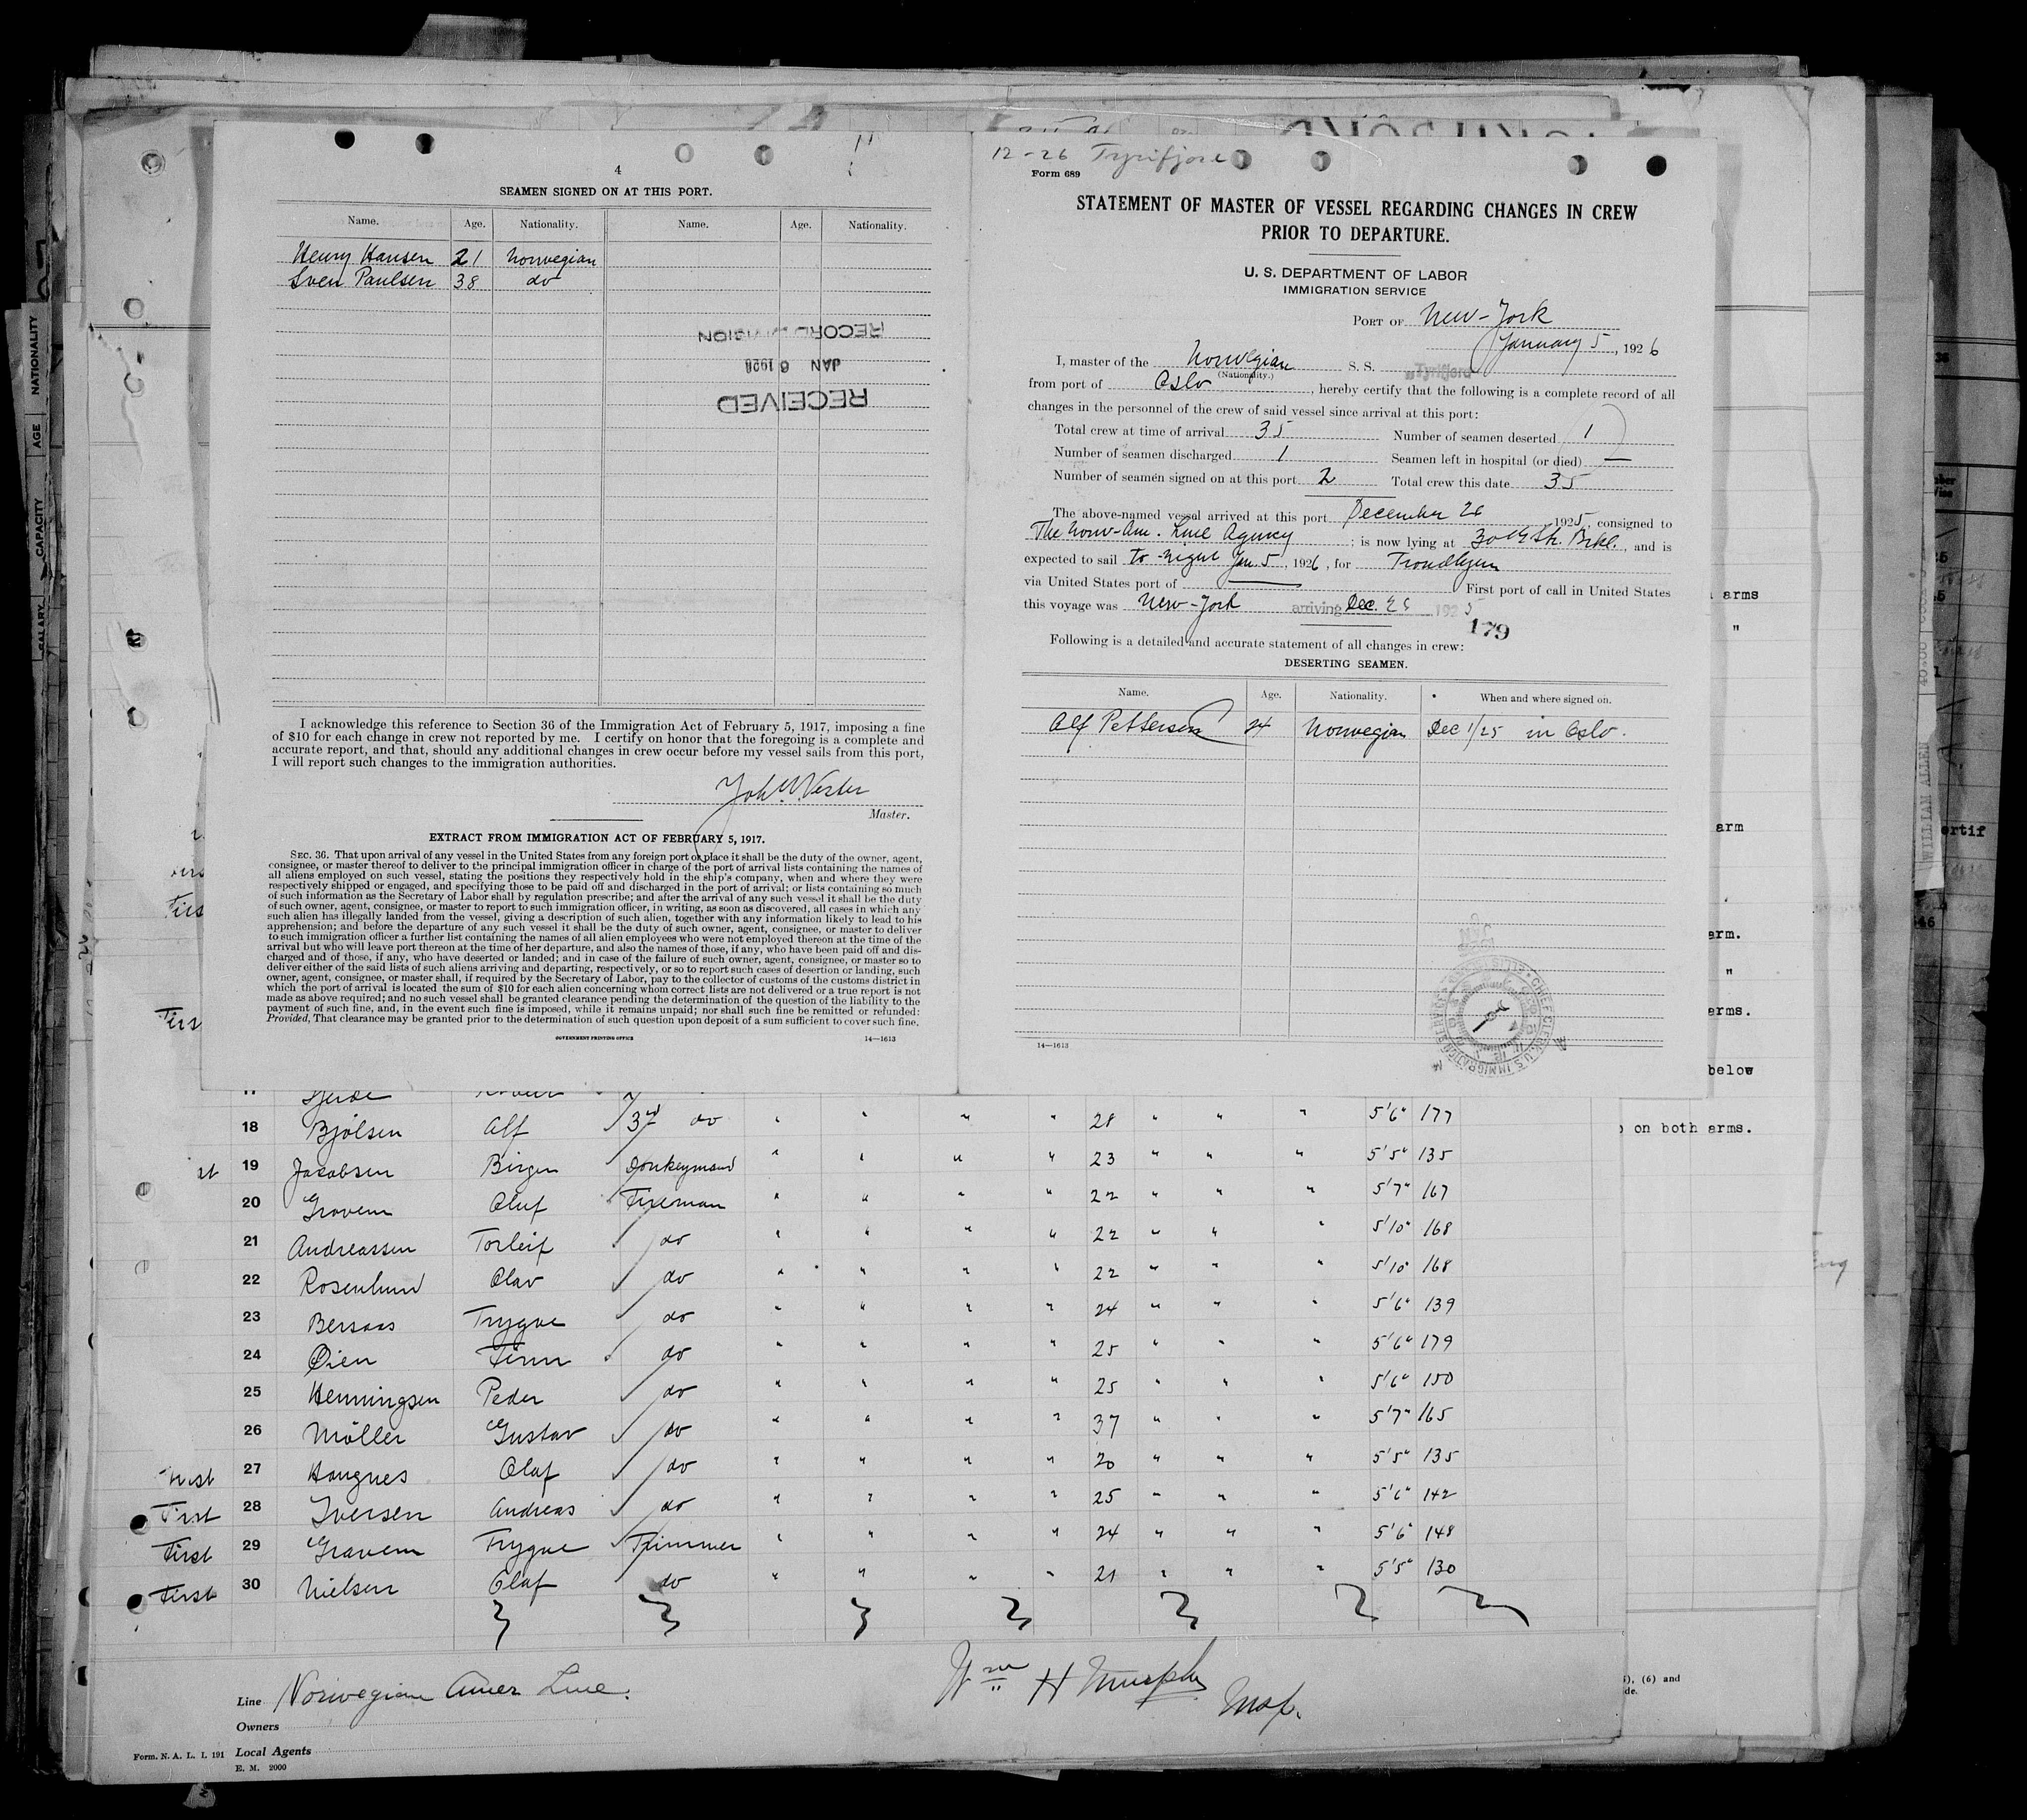 4
SEAMEN SIGNED ON AT THIS PORT.
Name. Age. Nationality. Name. Age. Nationality.
Henry Hansen 21 Norwegian
Sven Paulsen 38 do
RECORD DIVISION
JAN 6 1926
RECEIVED
I acknowledge this reference to Section 36 of the Immigration Act of February 5, 1917, imposing a fine
of $10 for each change in crew not reported by me. I certify on honor that the foregoing is a complete and
accurate report, and that, should any additional changes in crew occur before my vessel sails from this port,
I will report such changes to the immigration authorities.
Master.
EXTRACT FROM IMMIGRATION ACT OF FEBRUARY 5, 1917.
SEC. 36. That upon arrival of any vessel in the United States from any foreign port or place it shall be the duty of the owner, agent,
consignee, or master thereof to deliver to the principal immigration officer in charge of the port of arrival lists containing the names of
all aliens employed on such vessel, stating the positions they respectively hold in the ship's company, when and where they were
respectively shipped or engaged, and specifying those to be paid off and discharged in the port of arrival; or lists containing so much
of such information as the Secretary of Labor shall by regulation prescribe; and after the arrival of any such vessel it shall be the duty
of such owner, agent, consignee, or master to report to such immigration officer, in writing, as soon as discovered, all cases in which any
such alien has illegally landed from the vessel, giving a description of such alien, together with any information likely to lead to his
apprehension; and before the departure of any such vessel it shall be the duty of such owner, agent, consignee, or master to deliver
to such immigration officer a further list containing the names of all alien employees who were not employed thereon at the time of the
arrival but who will leave port thereon at the time of her departure, and also the names of those, if any, who have been paid off and dis-
charged and of those, if any, who have deserted or landed; and in case of the failure of such owner, agent, consignee, or master so to
deliver either of the said lists of such aliens arriving and departing, respectively, or so to report such cases of desertion or landing, such
owner, agent, consignee, or master shall, if required by the Secretary of Labor, pay to the collector of customs of the customs district in
which the port of arrival is located the sum of $10 for each alien concerning whom correct lists are not delivered or a true report is not
made as above required; and no such vessel shall be granted clearance pending the determination of the question of the liability to the
payment of such fine, and, in the event such fine is imposed, while it remains unpaid; nor shall such fine be remitted or refunded:
Provided, That clearance may be granted prior to the determination of such question upon deposit of a sum sufficient to cover such fine.
GOVERNMENT PRINTING OFFICE 14—1613
12-26 Tyrifjord
Form 689
STATEMENT OF MASTER OF VESSEL REGARDING CHANGES IN CREW
PRIOR TO DEPARTURE.
U. S. DEPARTMENT OF LABOR
IMMIGRATION SERVICE
PORT OF New-York
January 5, 1926
I, master of the Norwegian S. S. Tyrifjord
(Nationality.)
from port of Oslo, hereby certify that the following is a complete record of all
changes in the personnel of the crew of said vessel since arrival at this port:
Total crew at time of arrival 35 Number of seamen deserted 1
Number of seamen discharged 1 Seamen left in hospital (or died) —
Number of seamen signed on at this port 2 Total crew this date 35
The above-named vessel arrived at this port December 26 1925, consigned to
The Norw-Am. Line Agency; is now lying at 30th Str. Brkl., and is
expected to sail to-night Jan. 5, 1926, for Trondhjem
via United States port of — First port of call in United States
this voyage was New-York arriving Dec. 26 1925
179
Following is a detailed and accurate statement of all changes in crew:
DESERTING SEAMEN.
Name. Age. Nationality. When and where signed on.
Alf Pettersen 24 Norwegian Dec 1/25 in Oslo.
14—1613
18 Bjølsen Alf 3rd do " " " " 28 " " " 5'6" 177
19 Jacobsen Birger Donkeymand " " " " 23 " " " 5'5" 135
20 Gravem Oluf Fireman " " " " 22 " " " 5'7" 167
21 Andreassen Torleif do " " " " 22 " " " 5'10" 168
22 Rosenlund Olav do " " " " 22 " " " 5'10" 168
23 Bersaas Trygve do " " " " 24 " " " 5'6" 139
24 Øien Finn do " " " " 25 " " " 5'6" 179
25 Henningsen Peder do " " " " 25 " " " 5'6" 150
26 Møller Gustav do " " " " 37 " " " 5'7" 165
27 Haugnes Olaf do " " " " 20 " " " 5'5" 135
First 28 Iversen Andreas do " " " " 25 " " " 5'6" 142
First 29 Gravem Trygve Trimmer " " " " 24 " " " 5'6" 148
First 30 Nielsen Olaf do " " " " 21 " " " 5'5" 130
Line Norwegian Amer Line.
Wm H Murphy
Insp.
Owners
Form. N. A. L. I. 191 Local Agents
E. M. 2000
NATIONALITY
AGE
CAPACITY
SALARY
arms
"
arm
arm.
"
arms.
below
on both arms.
WILLIAM ALLEN
(6) and